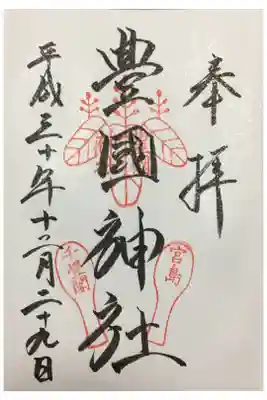 奉拝
豊國神社
宮島
千畳閣
平成三十年十二月二十九日